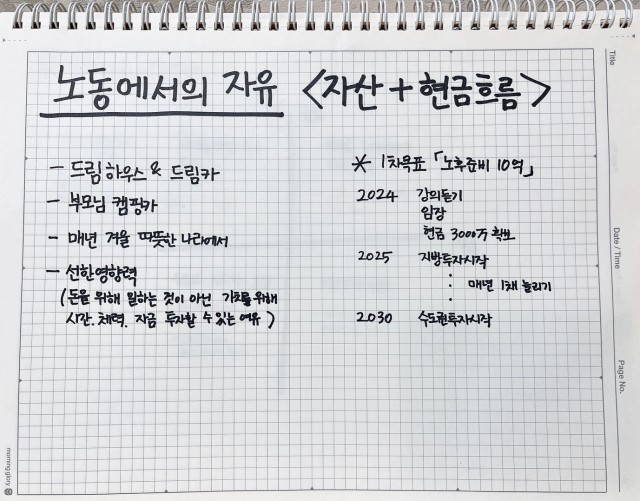 노동에서의 자유 <자산 + 현금흐름>
- 드림하우스 & 드림카
- 부모님 캠핑카
- 매년 겨울 따뜻한 나라에서
- 선한영향력
(돈을 위해 일하는 것이 아닌 가치를 위해
시간. 체력. 자금 투자할 수 있는 여유)
* 1차목표 「노후준비 10억」
2024 강의듣기
임장
현금 3000만 확보
2025 지방투자시작
: 매년 1채 늘리기
2030 수도권투자시작
Title
Date / Time
Page No.
morning glory